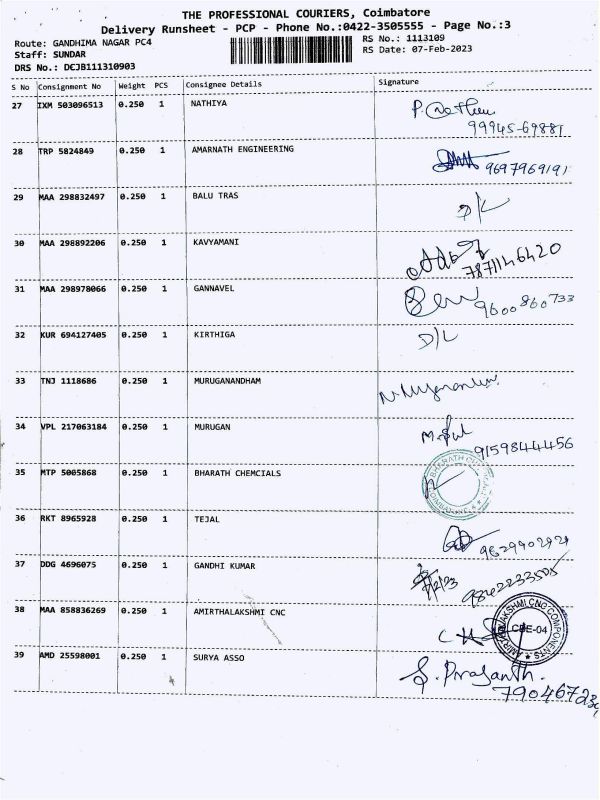 THE PROFESSIONAL COURIERS, Coimbatore
Delivery Runsheet - PCP - Phone No.:0422-3505555 - Page No.:3
Route: GANDHIMA NAGAR PC4
RS No.: 1113109
Staff: SUNDAR
RS Date: 07-Feb-2023
DRS No.: DCJB111310903
S No Consignment No Weight PCS Consignee Details Signature
27 IXM 503096513 0.250 1 NATHIYA
99945-69881
28 TRP 5824849 0.250 1 AMARNATH ENGINEERING
9697969191
29 MAA 298832497 0.250 1 BALU TRAS D/L
30 MAA 298892206 0.250 1 KAVYAMANI
7871146420
31 MAA 298978066 0.250 1 GANNAVEL
9600860733
32 KUR 694127405 0.250 1 KIRTHIGA D/L
33 TNJ 1118686 0.250 1 MURUGANANDHAM
34 VPL 217063184 0.250 1 MURUGAN
9159844456
35 MTP 5005868 0.250 1 BHARATH CHEMCIALS
36 RKT 8965928 0.250 1 TEJAL
37 DDG 4696075 0.250 1 GANDHI KUMAR
9842233505
38 MAA 858836269 0.250 1 AMIRTHALAKSHMI CNC
CBE-04
39 AMD 25598001 0.250 1 SURYA ASSO
S. Prasanth.